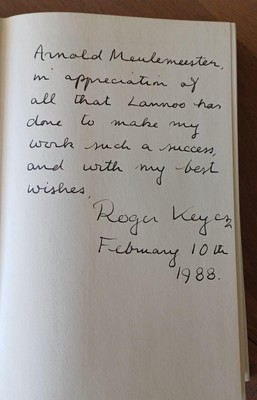 Arnold Meulemeester,
in appreciation of
all that Lannoo has
done to make my
work such a success,
and with my best
wishes,
Roger Keyes
February 10th
1988.